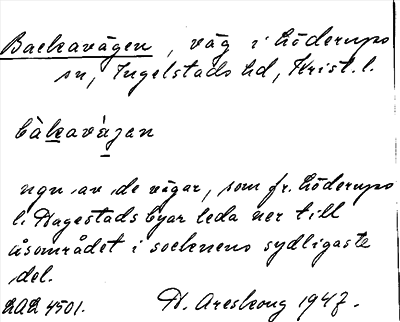 Backavägen, väg i Löderups
sn, Ingelstads hd, Krist. l.
bàkavàjan
ngn av de vägar, som fr. Löderups
l. Hagestads byar leda ner till
åsområdet i socknens sydligaste
del.
LAL 4501. H. Areskoug 1947.